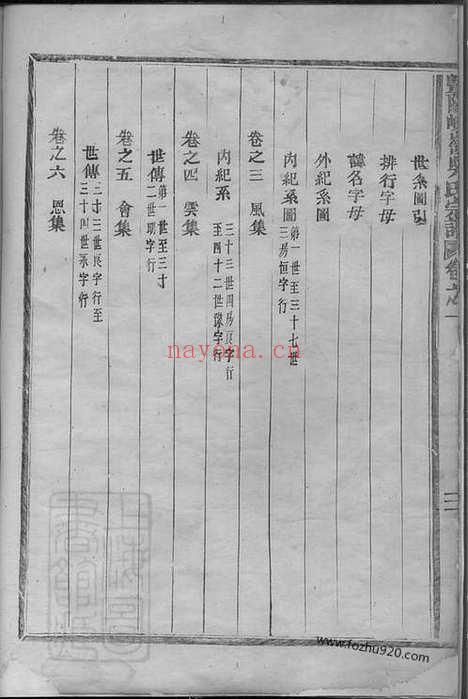 世系圖引
排行字母
諱名字母
外紀系圖
內紀系圖 第一世至三十七世
三房恒字行
卷之三 風集
內紀系 三十三世四房良字行
至四十二世 字行
卷之四 雲集
世傳 第一世至三十
二世 字行
卷之五 會集
世傳 三十三世良字行至
三十四世承字行
卷之六 恩集
卷之一
nayona.cn
www.fozhu920.com